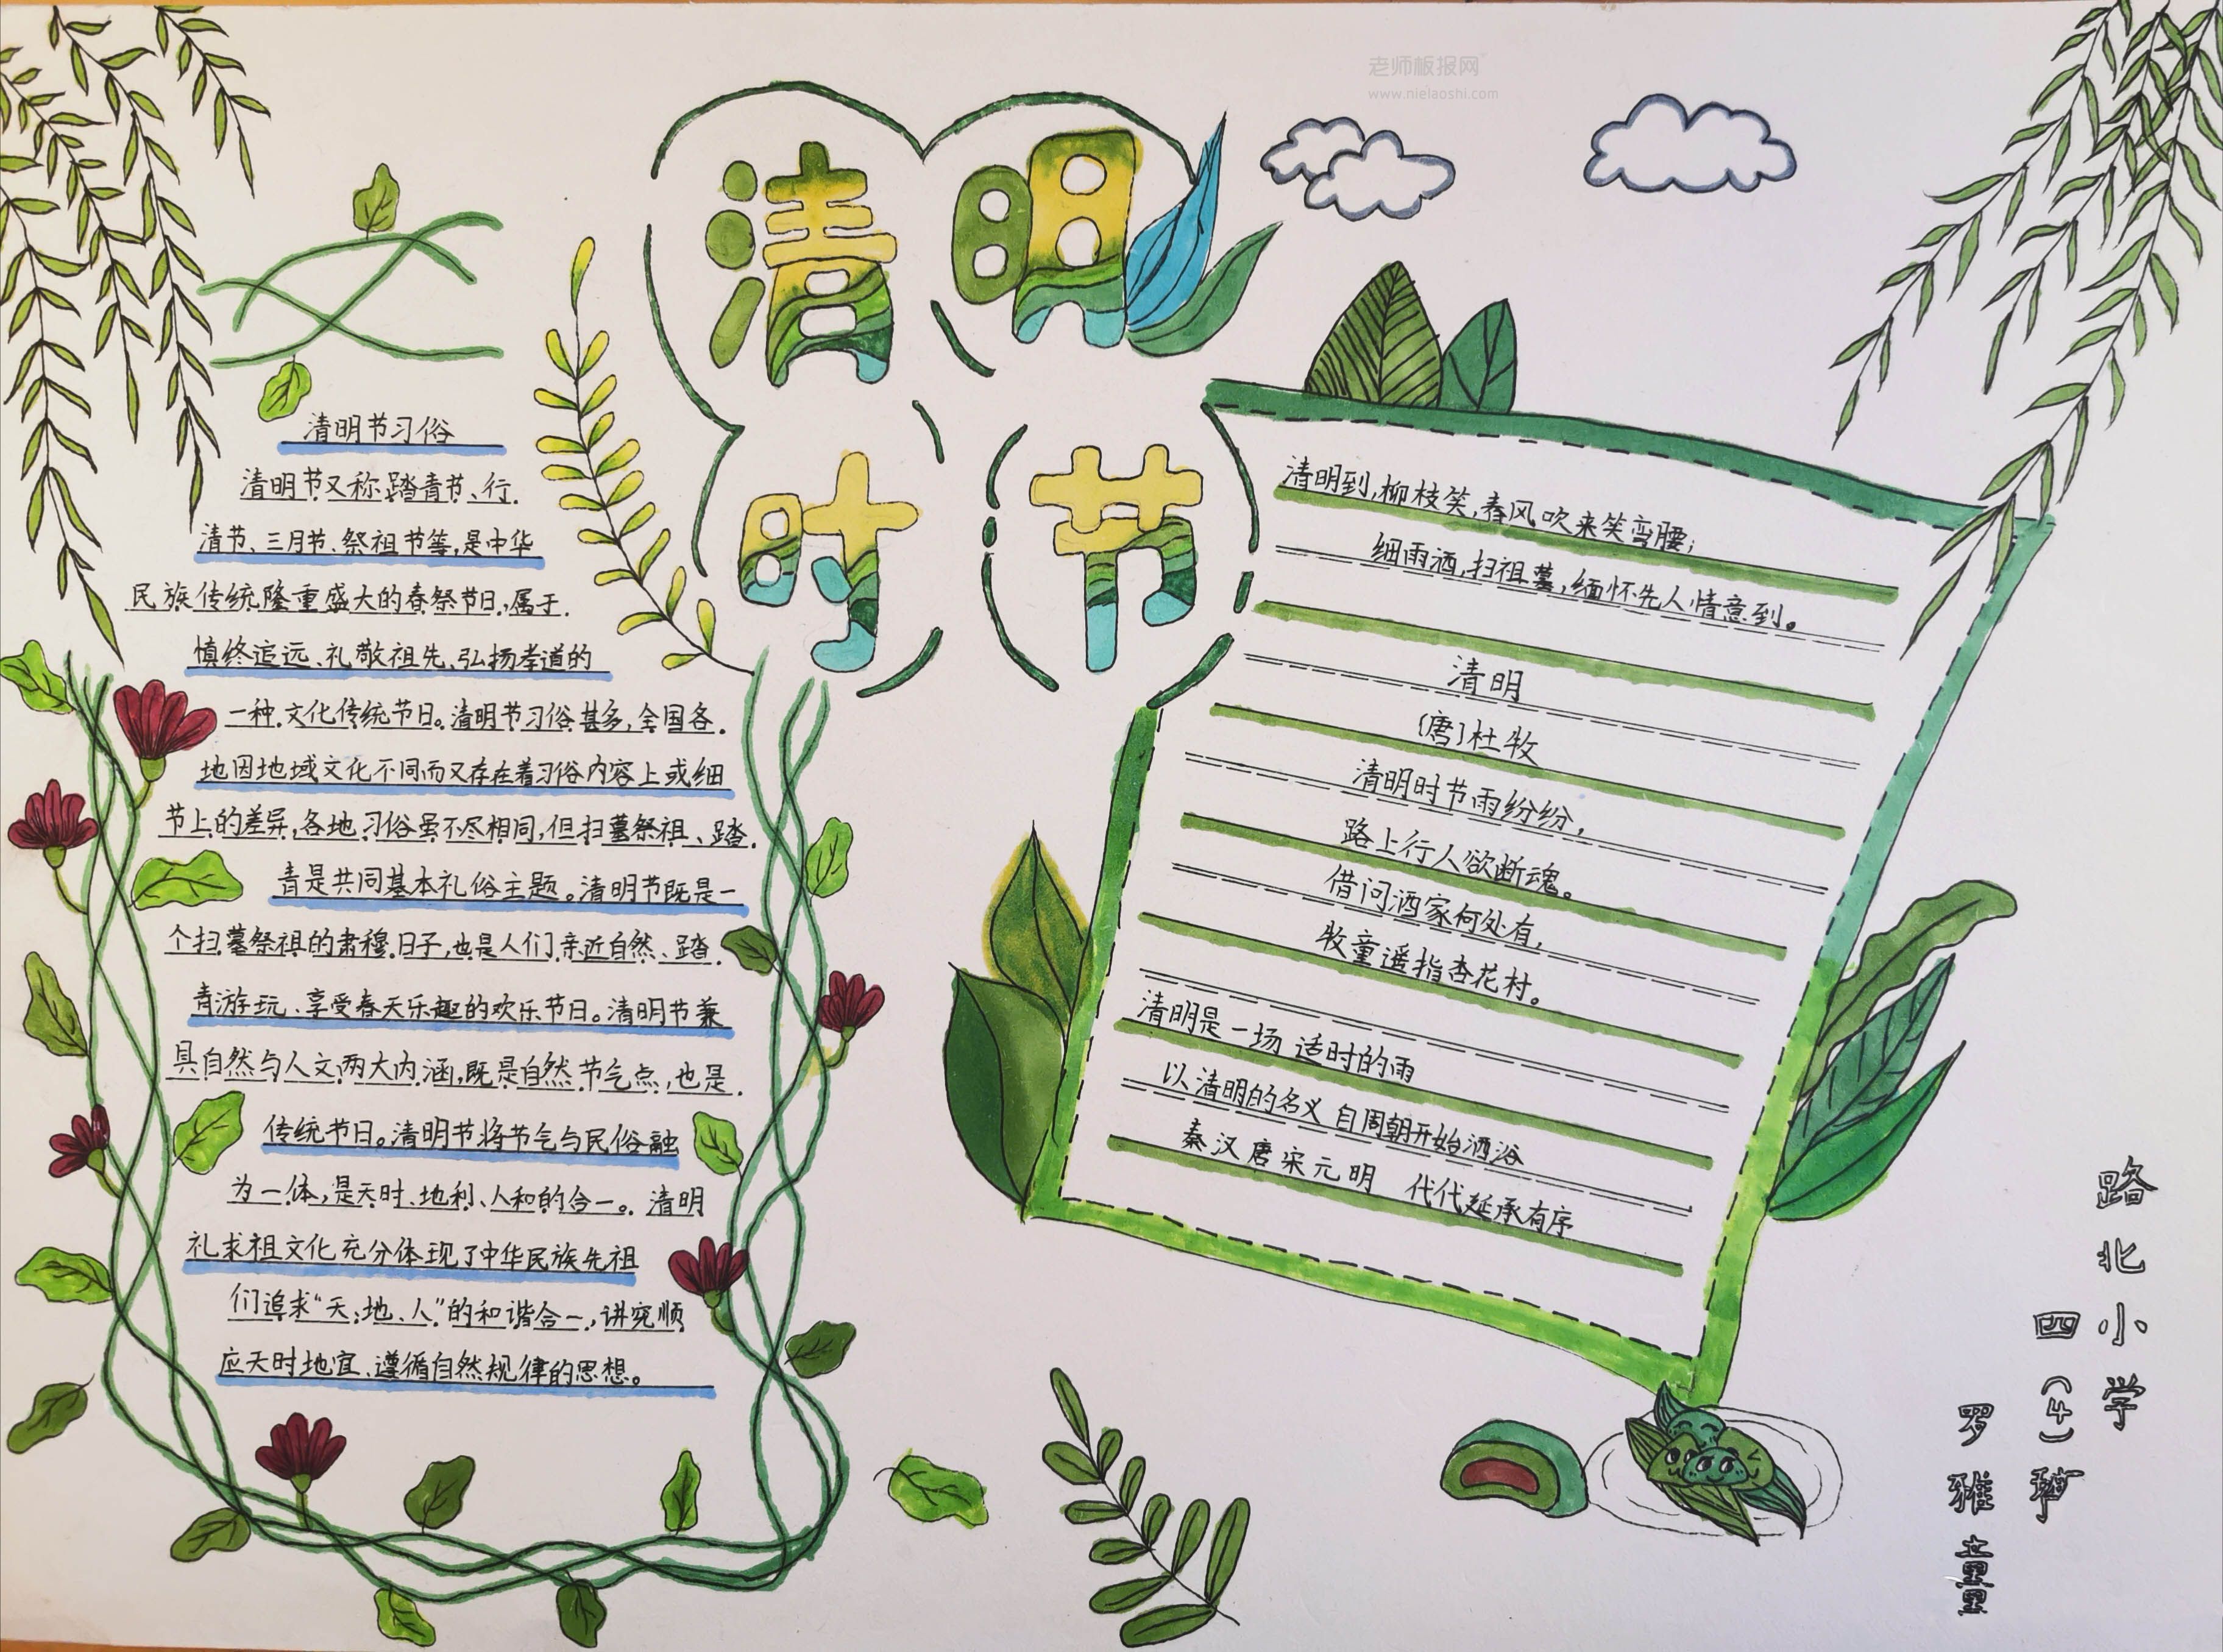 老师板报网
www.nielaoshi.com
清明
时节
清明节习俗
清明节又称踏青节、行
清节、三月节、祭祖节等,是中华
民族传统隆重盛大的春祭节日,属于
慎终追远、礼敬祖先、弘扬孝道的
一种文化传统节日。清明节习俗甚多,全国各
地因地域文化不同而又存在着习俗内容上或细
节上的差异,各地习俗虽不尽相同,但扫墓祭祖、踏
青是共同基本礼俗主题。清明节既是一
个扫墓祭祖的肃穆日子,也是人们亲近自然、踏
青游玩、享受春天乐趣的欢乐节日。清明节兼
具自然与人文两大内涵,既是自然节气点,也是
传统节日。清明节将节气与民俗融
为一体,是天时、地利、人和的合一。清明
礼求祖文化充分体现了中华民族先祖
们追求“天、地、人”的和谐合一,讲究顺
应天时地宜、遵循自然规律的思想。
清明到,柳枝笑,春风吹来笑弯腰;
细雨洒,扫祖墓,缅怀先人情意到。
清明
(唐)杜牧
清明时节雨纷纷,
路上行人欲断魂。
借问酒家何处有,
牧童遥指杏花村。
清明是一场 适时的雨
以清明的名义 自周朝开始洒浴
秦汉唐宋元明 代代延承有序
路北小学
四(4)
罗雅童